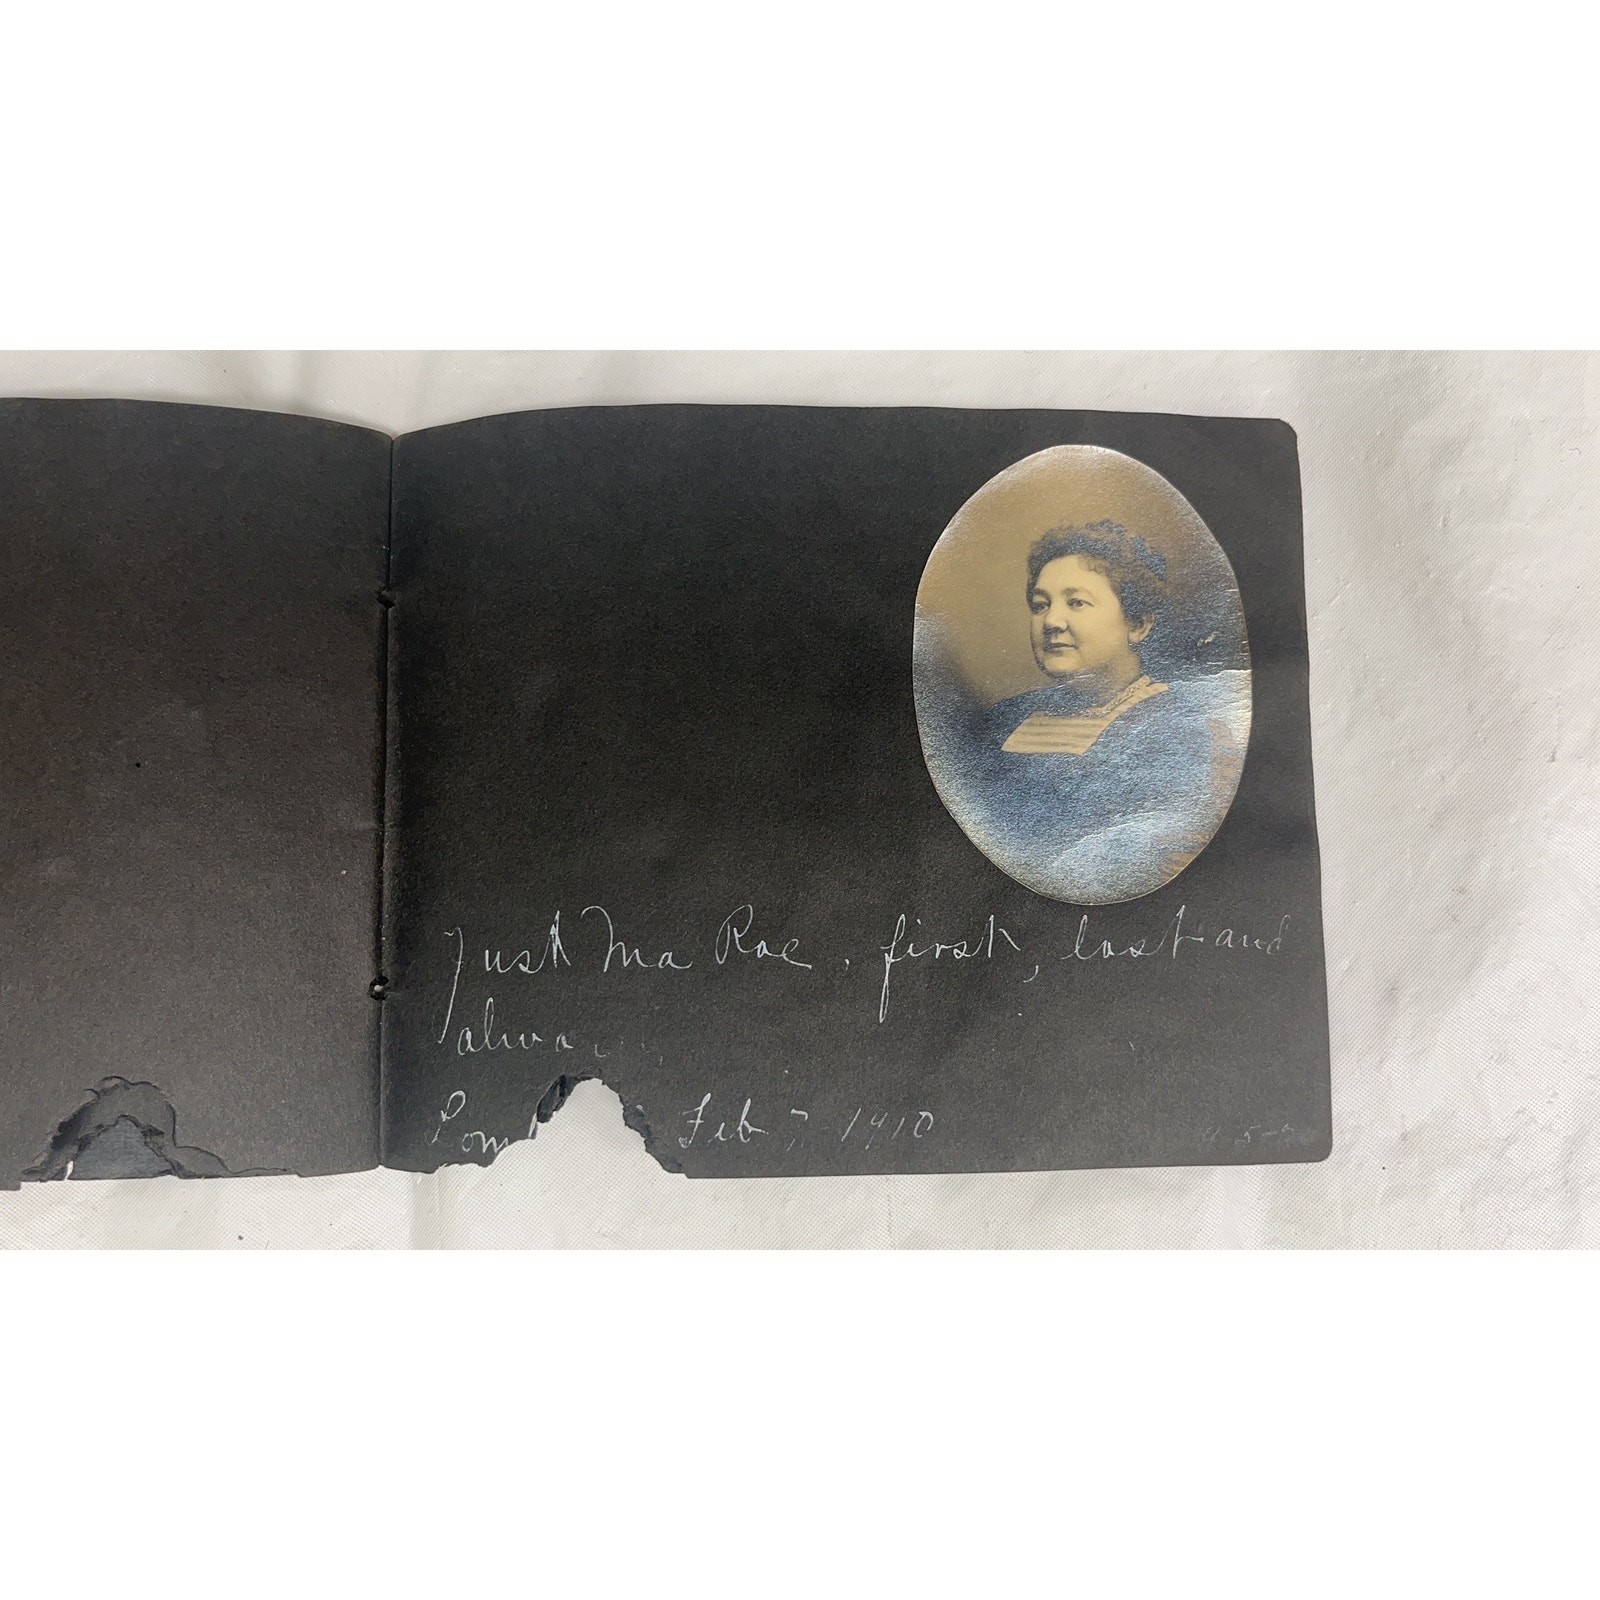 Just Ma Rae, first, last and
always
Feb 7, 1910